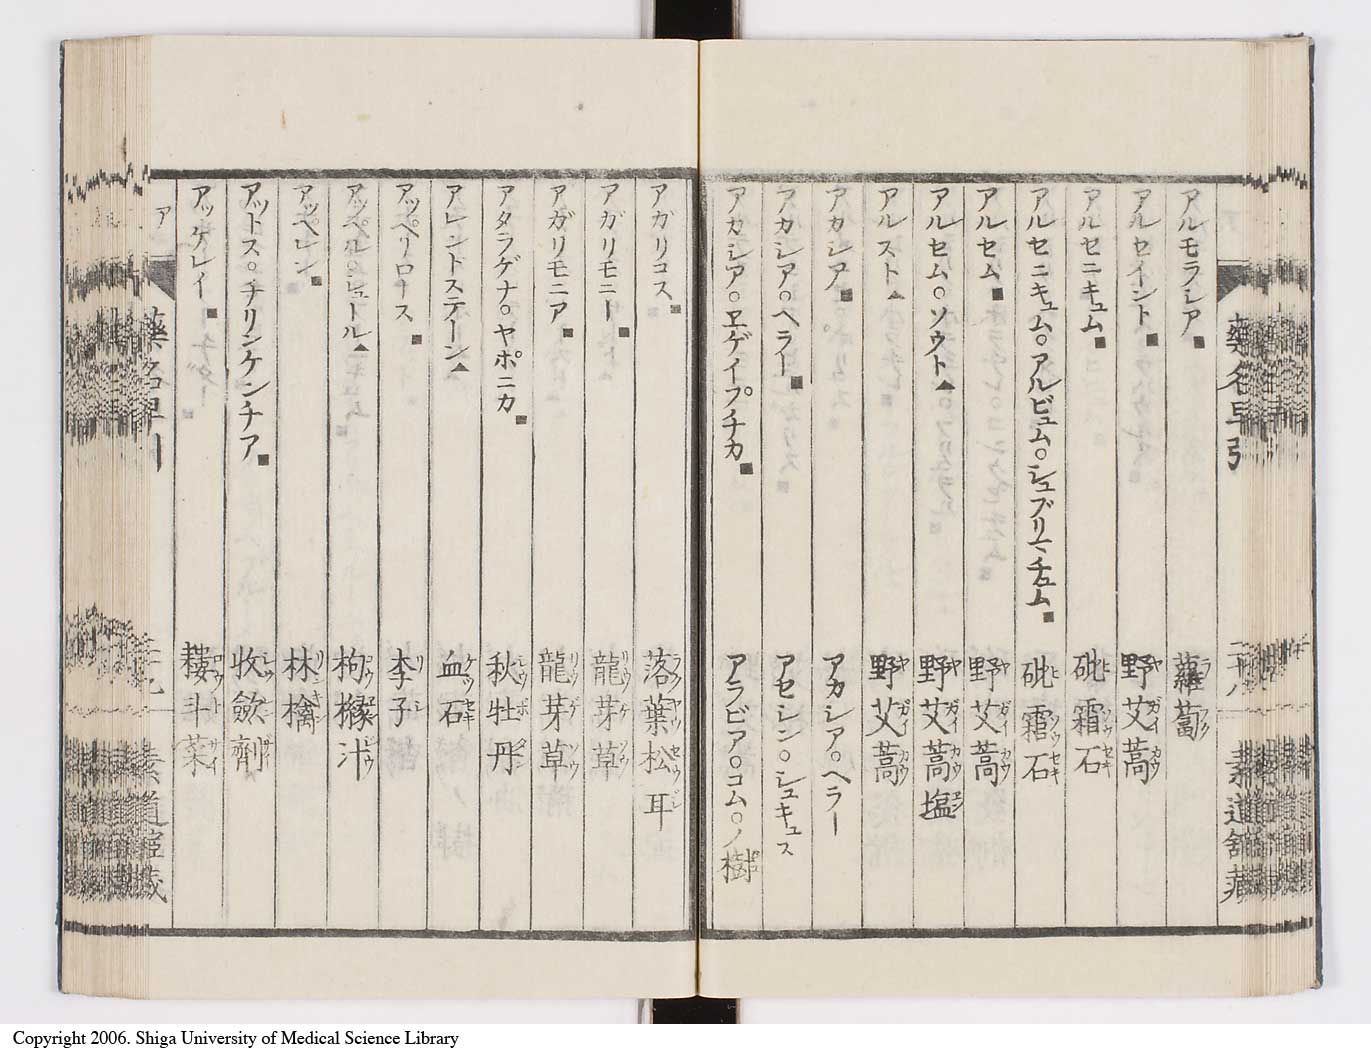 アルモラシア■ 蘿蔔
アルセイント■ 野艾蒿
アルセニキュム■ 砒霜石
アルセニキュム○アルビュム○シュブリーチュム■ 砒霜石
アルセム■ 野艾蒿
アルセム○ソウト▲ 野艾蒿塩
アルスト▲ 野艾蒿
アカシア■ アカシア○ヘラー
アカシア○ヘラー■ アセシン○シュキュス
アカシア○ヱゲイプチカ■ アラビア○コム○ノ樹
アガリコス■ 落葉松耳
アガリモニー■ 龍芽草
アガリモニア■ 龍芽草
アタラゲナ○ヤポニカ■ 秋牡丹
アレンドステーン▲ 血石
アッペリロース■ 李子
アッペル○シュートル▲ 枸櫞汁
アッペレン■ 林檎
アットス○チリンケンチア■ 收斂劑
アッケレイ■ 耬斗菜
藥名早引
二十八
素道舘藏
ア
藥名早引
Copyright 2006. Shiga University of Medical Science Library